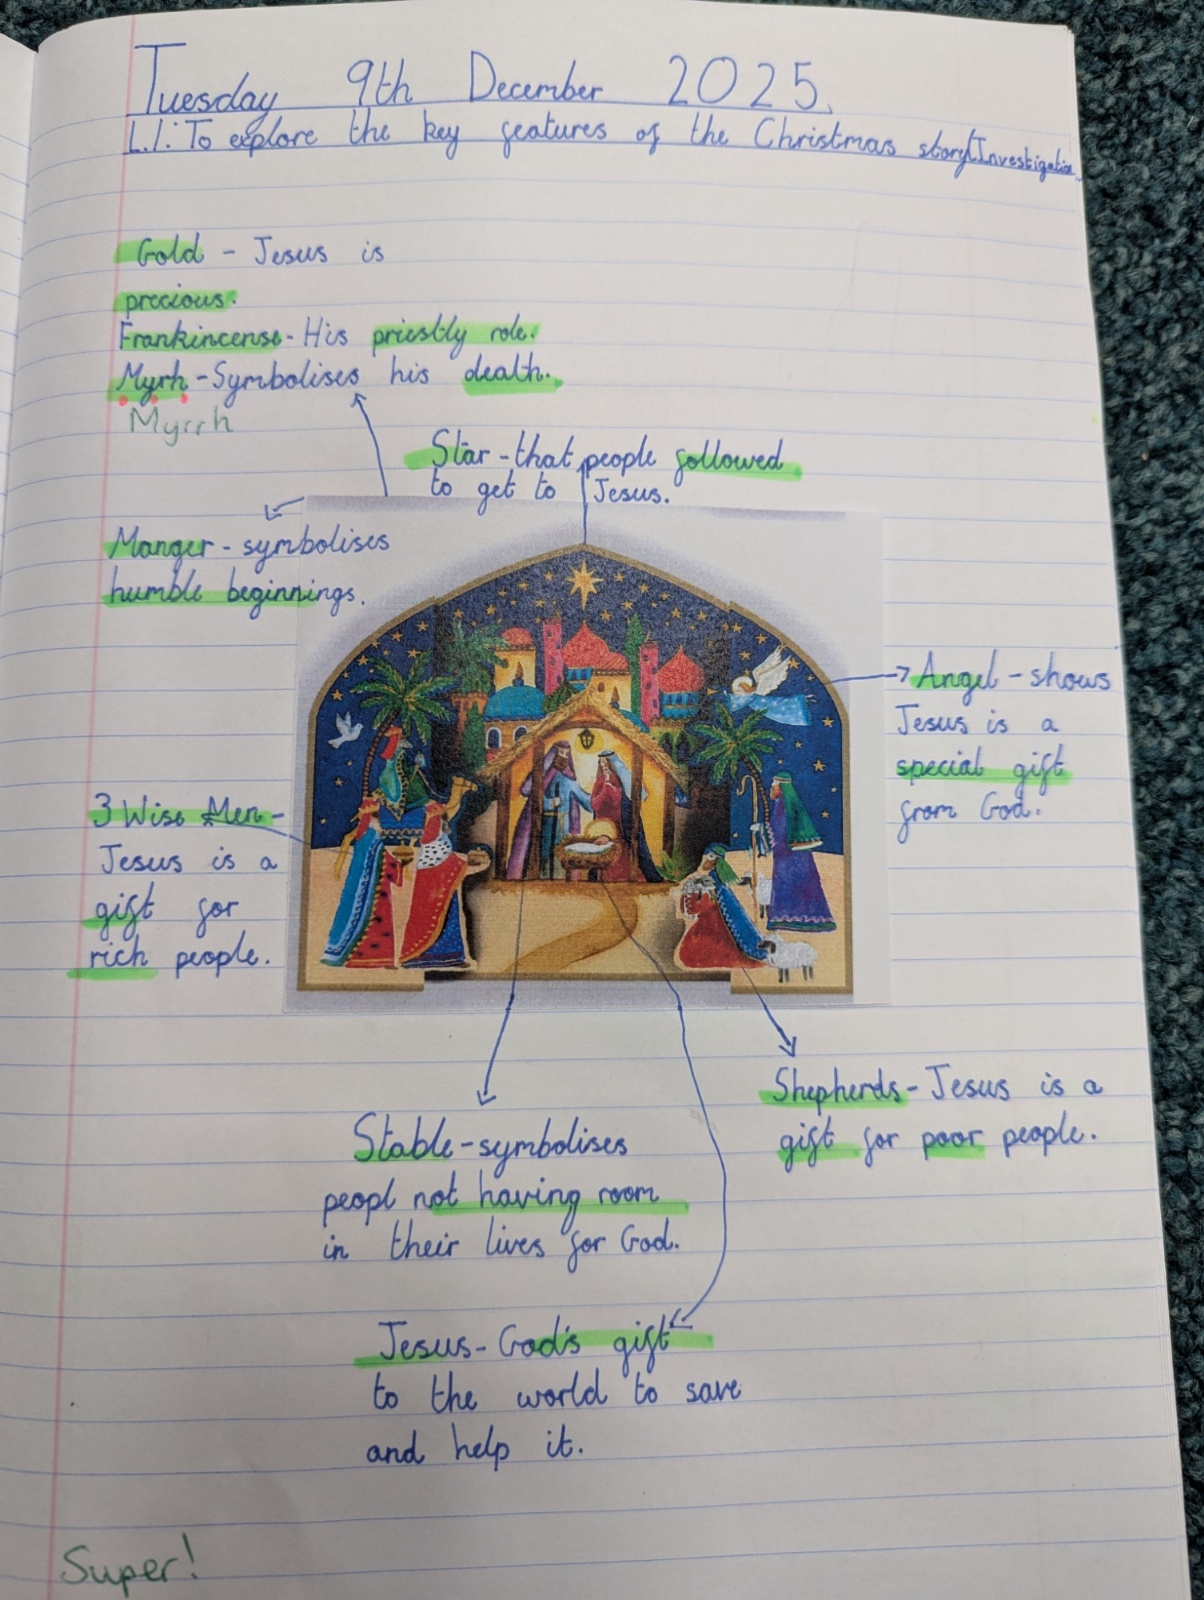 Tuesday 9th December 2025.
L.I: To explore the key features of the Christmas story Investigation.
Gold - Jesus is
precious.
Frankincense - His priestly role.
Myrh - Symbolises his death.
Myrrh
Star - that people followed
to get to Jesus.
Manger - symbolises
humble beginnings.
Angel - shows
Jesus is a
special gift
from God.
3 Wise Men -
Jesus is a
gift for
rich people.
Shepherds - Jesus is a
gift for poor people.
Stable - symbolises
peopl not having room
in their lives for God.
Jesus - God's gift
to the world to save
and help it.
Super!